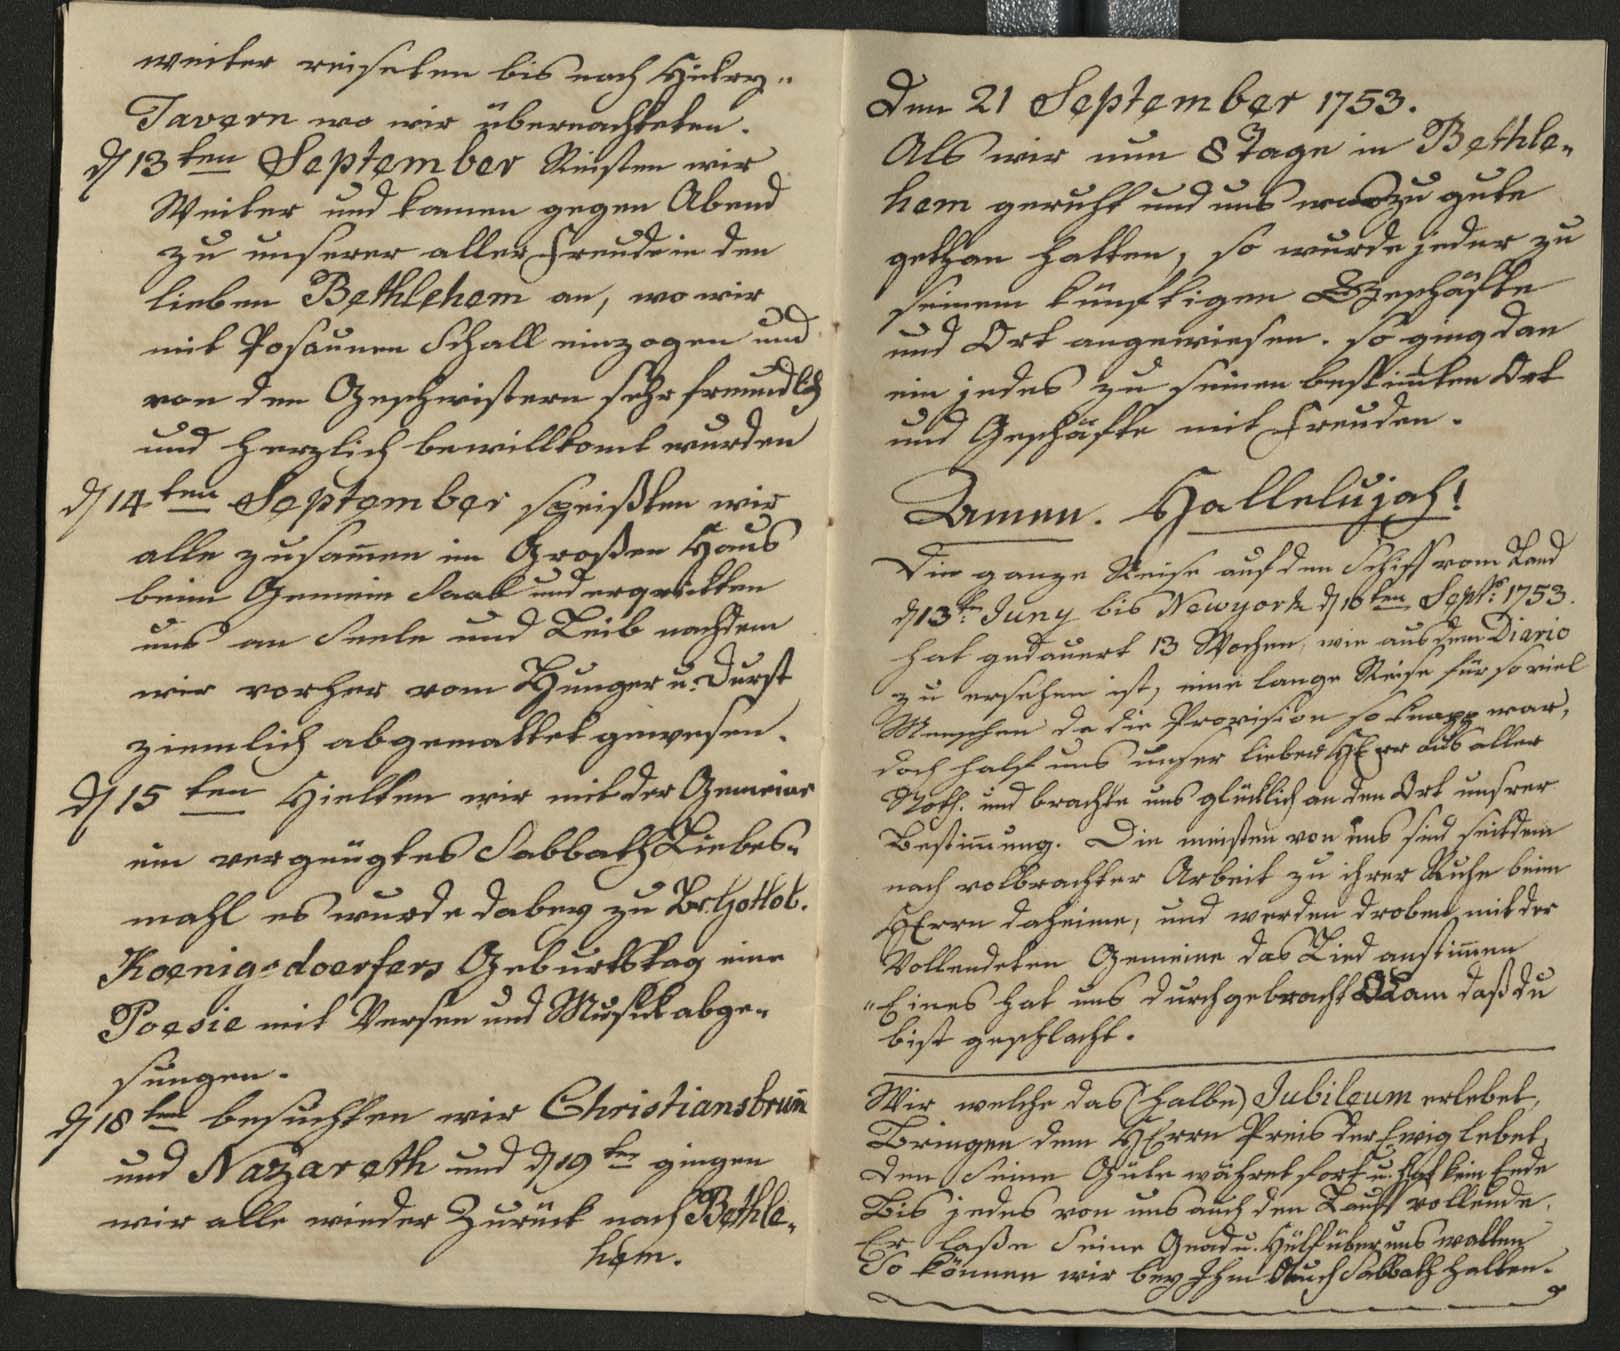 weiter reiseten bis nach Hickry-
Tavern wo wir übernachteten.
d 13ten September Reisten wir
Weiter und kamen gegen Abend
zu unserer aller Freude in den
lieben Bethlehem an, wo wir
mit Posaunen Schall einzogen und
von den Geschwistern sehr freundlich
und herzlich bewillkomt wurden
d 14ten September speißten wir
alle zusam̄en im Großen Haus
beim Gemein Saal und erquickten
uns an Seele und Leib nachdem
wir vorher vom Hunger u. Durst
ziemlich abgemattet gewesen.
d 15ten Hielten wir mit der Gemeine
ein vergnügtes Sabbath Liebes-
mahl es wurde dabey zu Br. Gottlob.
Koenigsdoerfers Geburtstag eine
Poesie mit Versen und Musick abge-
sungen.
d 18ten besuchten wir Christiansbrun̄
und Nazareth und d 19ten gingen
wir alle wieder Zurück nach Bethle-
hem.
Den 21 September 1753.
Als wir nun 8 Tage in Bethle-
hem geruht und uns was zu gute
gethan hatten, so wurde jeder zu
seinem künftigen Geschäfte
und Ort angewiesen. so ging dan
ein jedes zu seinen bestim̄ten Ort
und Geschäfte mit Freuden.
Amen. Hallelujah!
Die ganze Reise auf den Schiff vom Land
d 13ten Juny bis Newyork d 10ten Septr. 1753.
hat gedauert 13 Wochen, wie aus dem Diario
zu ersehen ist, eine lange Reise für so viel
Menschen da die Provision so knapp war,
doch half uns unser lieber HErr aus aller
Noth. und brachte uns glücklich an den Ort unsrer
Bestim̄ung. Die meisten von uns sind seitdem
nach volbrachter Arbeit zu ihrer Ruhe beim
HErrn daheime, und werden droben mit der
Vollendeten Gemeine das Lied anstim̄en
"Eines hat uns durchgebracht Lam daß du
bist geschlacht.
Wir welche das (halbe) Jubileum erlebet,
Bringen dem HErrn Preis der Ewig lebet,
Den Seine Güte währet fort u. hat kein Ende
Bis jedes von uns auch den Lauff vollende.
Er laße Seine Gnad u. Hülf über uns walten
So können wir bey Ihm Auch Sabbath halten.